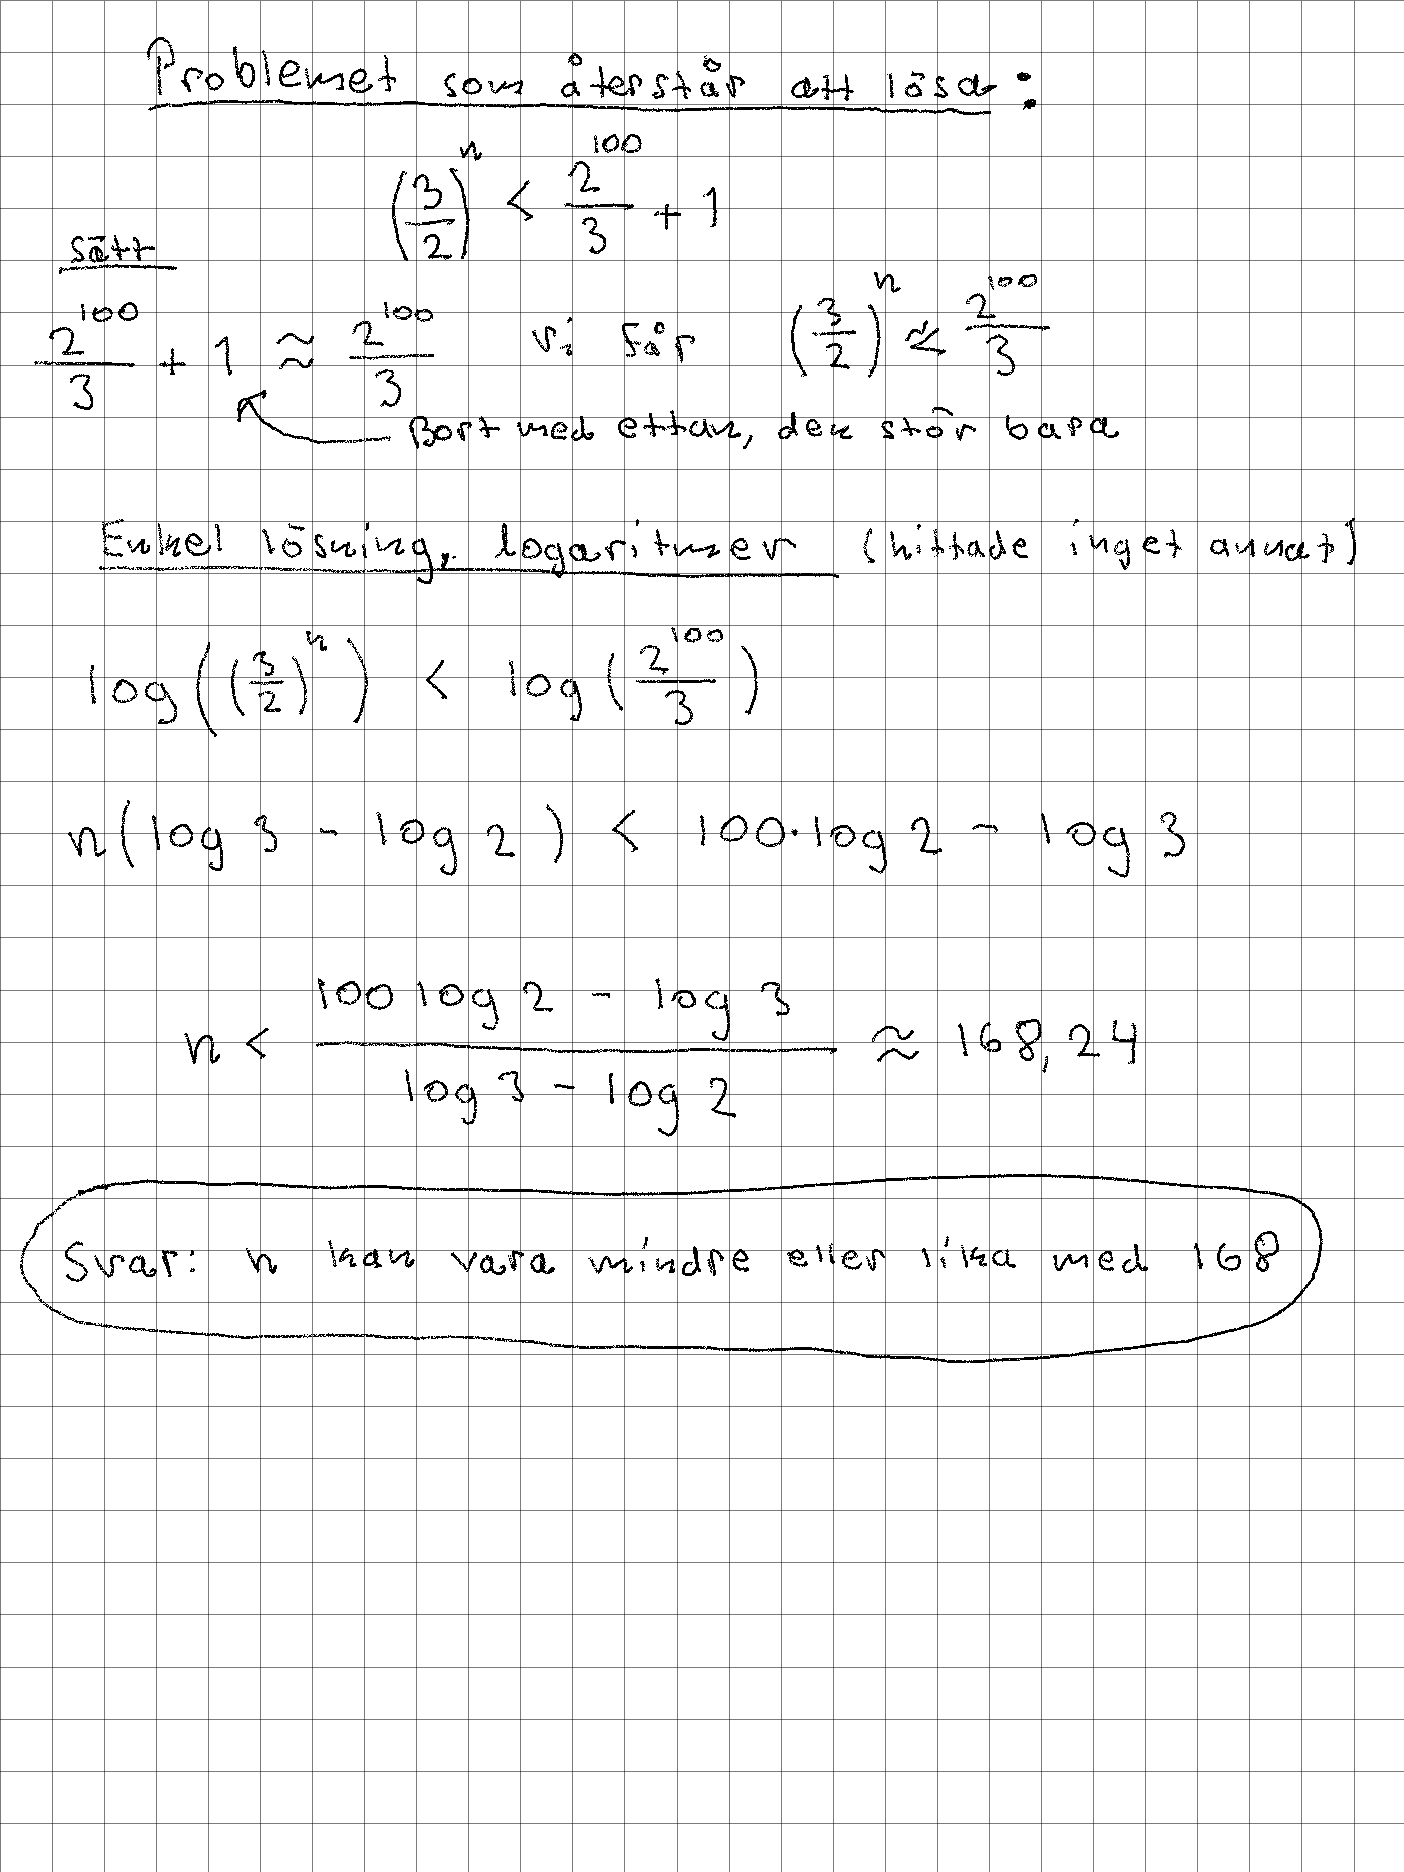 Problemet som återstår att lösa:
(3/2)^n < 2^100/3 + 1
sätt
2^100/3 + 1 ≈ 2^100/3 vi får (3/2)^n ⪅ 2^100/3
Bort med ettan, den stör bara
Enkel lösning, logaritmer (hittade inget annat)
log((3/2)^n) < log(2^100/3)
n(log 3 - log 2) < 100·log 2 - log 3
n < (100 log 2 - log 3)/(log 3 - log 2) ≈ 168,24
Svar: n kan vara mindre eller lika med 168